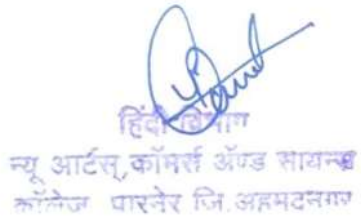 हिंदी विभाग
न्यू आर्टस्,कॉमर्स ॲण्ड सायन्स
कॉलेज पारनेर जि.अहमदनगर